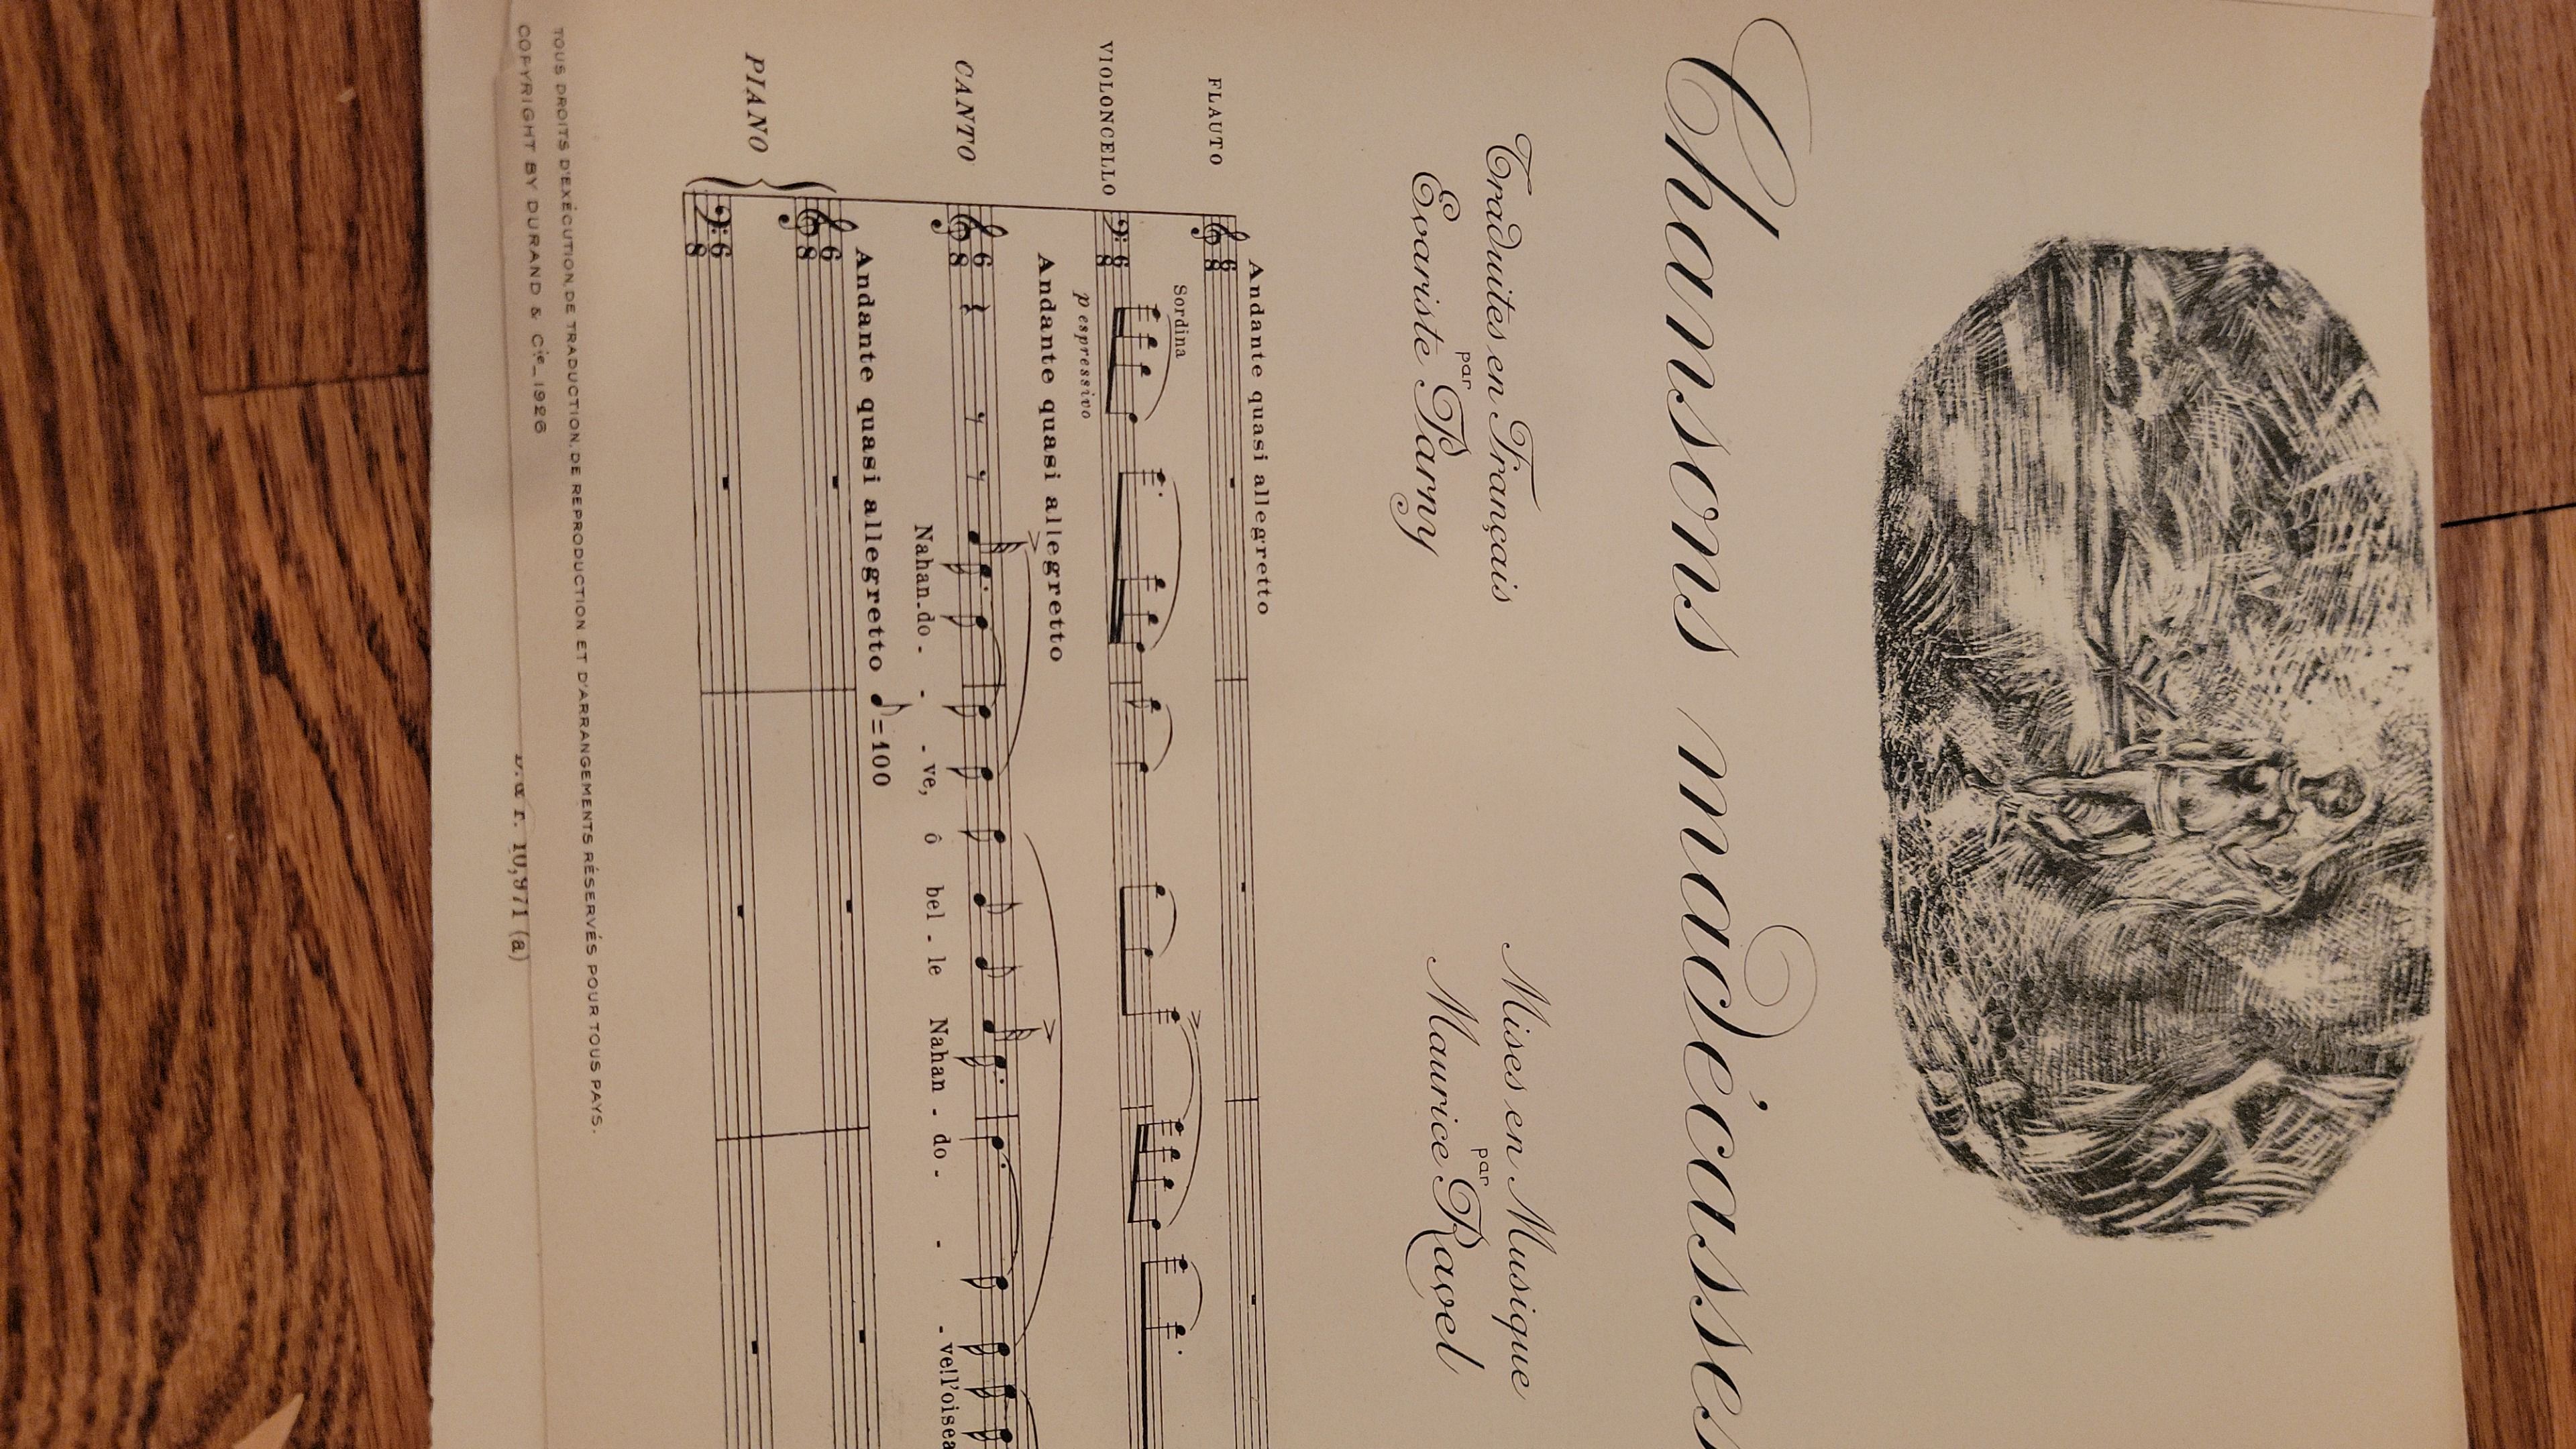 Chansons madécasses
Traduites en Français
par
Evariste Parny
Mises en Musique
par
Maurice Ravel
Andante quasi allegretto
FLAUTO
Sordina
VIOLONCELLO
p espressivo
Andante quasi allegretto
CANTO
Nahan-do - - - ve, ô bel - le Nahan - do - - - ve! l'oisea
Andante quasi allegretto ♪=100
PIANO
TOUS DROITS D'EXÉCUTION, DE TRADUCTION, DE REPRODUCTION ET D'ARRANGEMENTS RÉSERVÉS POUR TOUS PAYS.
COPYRIGHT BY DURAND & Cie_1926
D. & F. 10,971 (a)